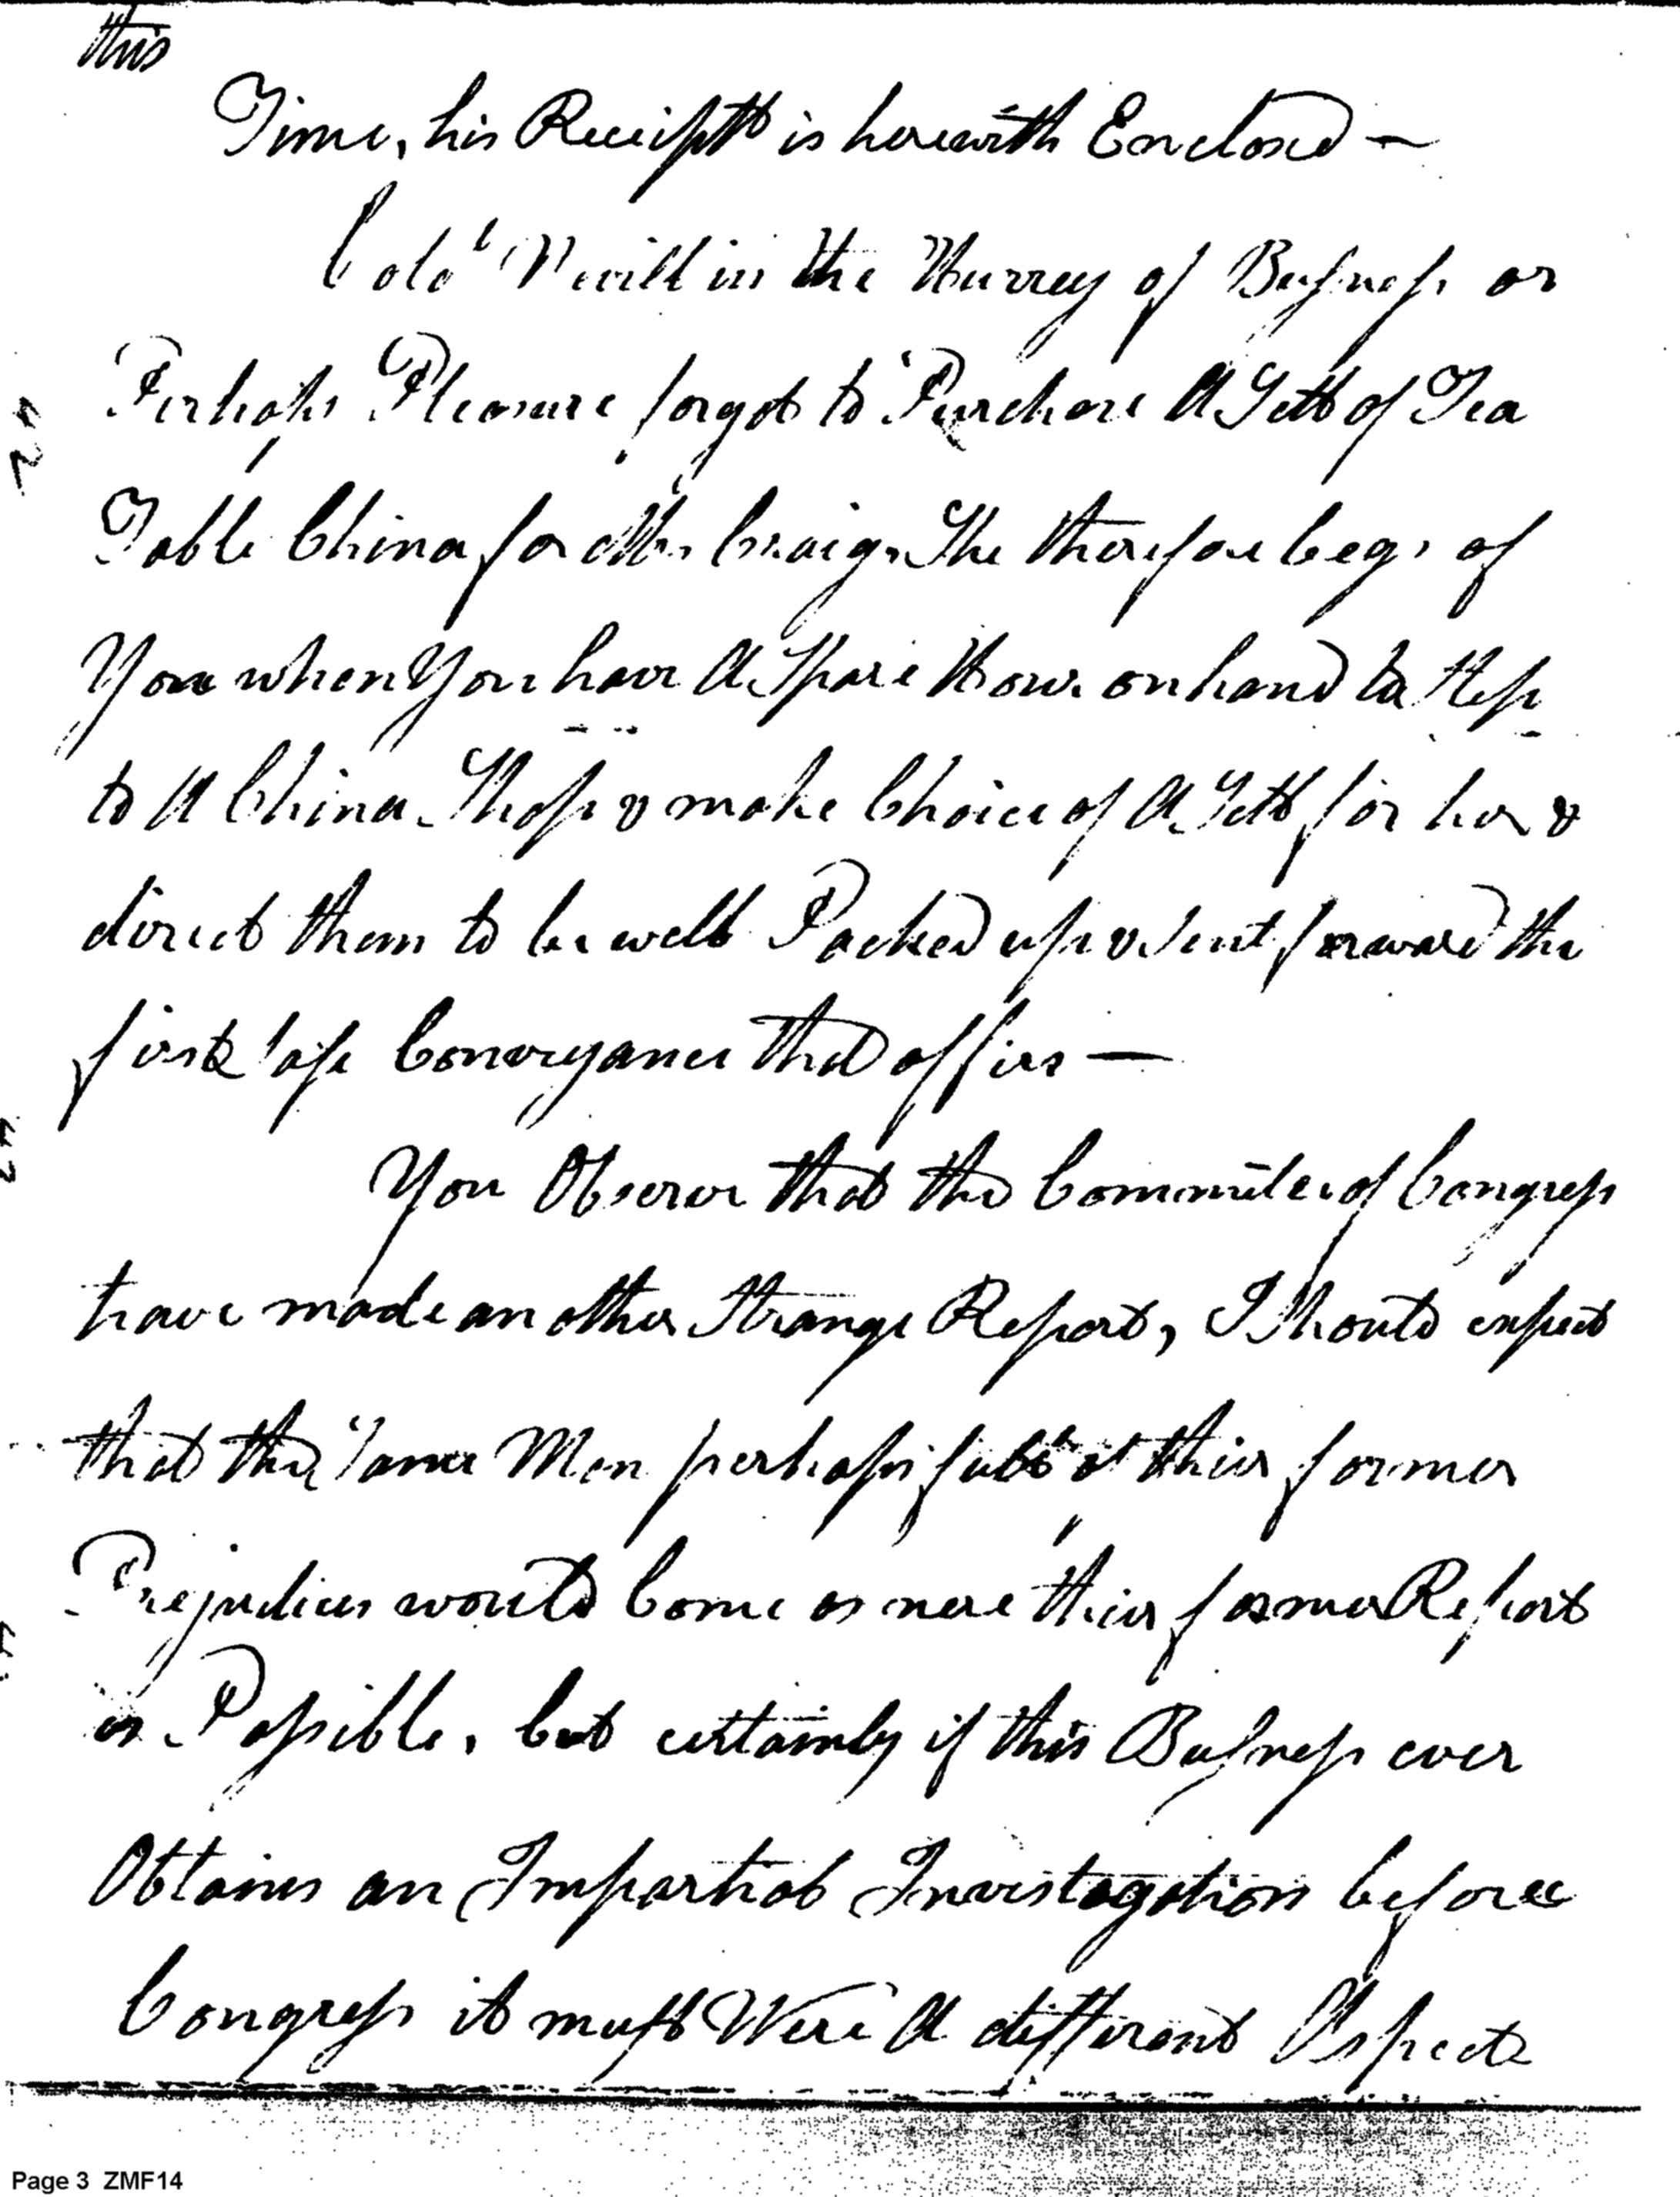 this
Time, his Receiptt is herewith Enclosed —
Colo¹ Nevill in the Hurrey of Busness or
Perhaps Pleasure forgot to Purchase A Sett of Tea
Table China for Mrs Craig, She therefore begs of
You when You have A Spare Hour on hand to Step
to A China Shop & make Choice of A Sett for her &
direct them to be well Packed up & Sent forward the
first safe Conveyance that offers —
You Observe that the Commitee of Congress
have made another Strange Report, I Should expect
that the same Men perhaps full of thier former
Prejudices would Come as nere thier former Report
as Possible, but certainly if this Busness ever
Obtaines an Impartial Investagation before
Congress it must Were A different Aspect
Page 3 ZMF14